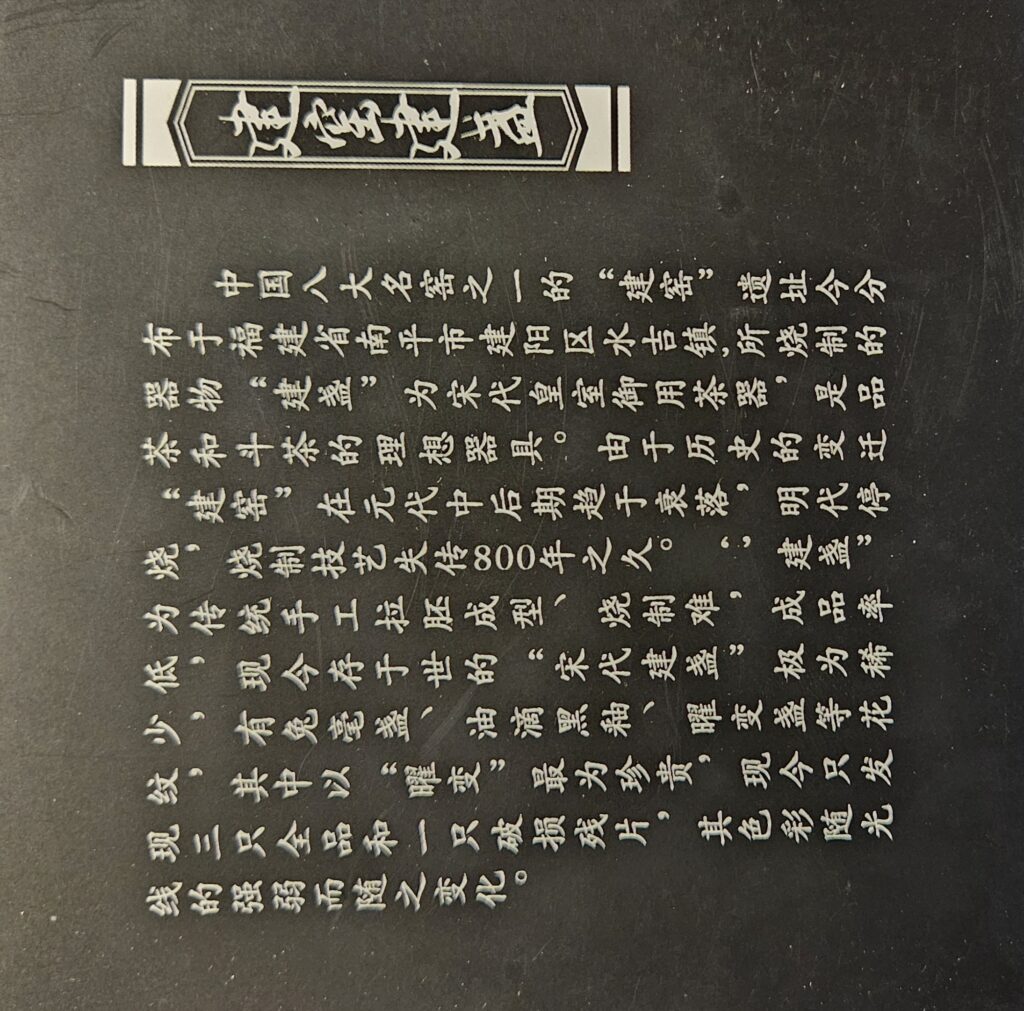 建窑建盏
中国八大名窑之一的“建窑”遗址今分
布于福建省南平市建阳区水吉镇,所烧制的
器物“建盏”为宋代皇室御用茶器,是品
茶和斗茶的理想器具。由于历史的变迁
“建窑”在元代中后期趋于衰落,明代停
烧,烧制技艺失传800年之久。“建盏”
为传统手工拉胚成型、烧制难,成品率
低,现今存于世的“宋代建盏”极为稀
少,有兔毫盏、油滴黑釉、曜变盏等花
纹,其中以“曜变”最为珍贵,现今只发
现三只全品和一只破损残片,其色彩随光
线的强弱而随之变化。